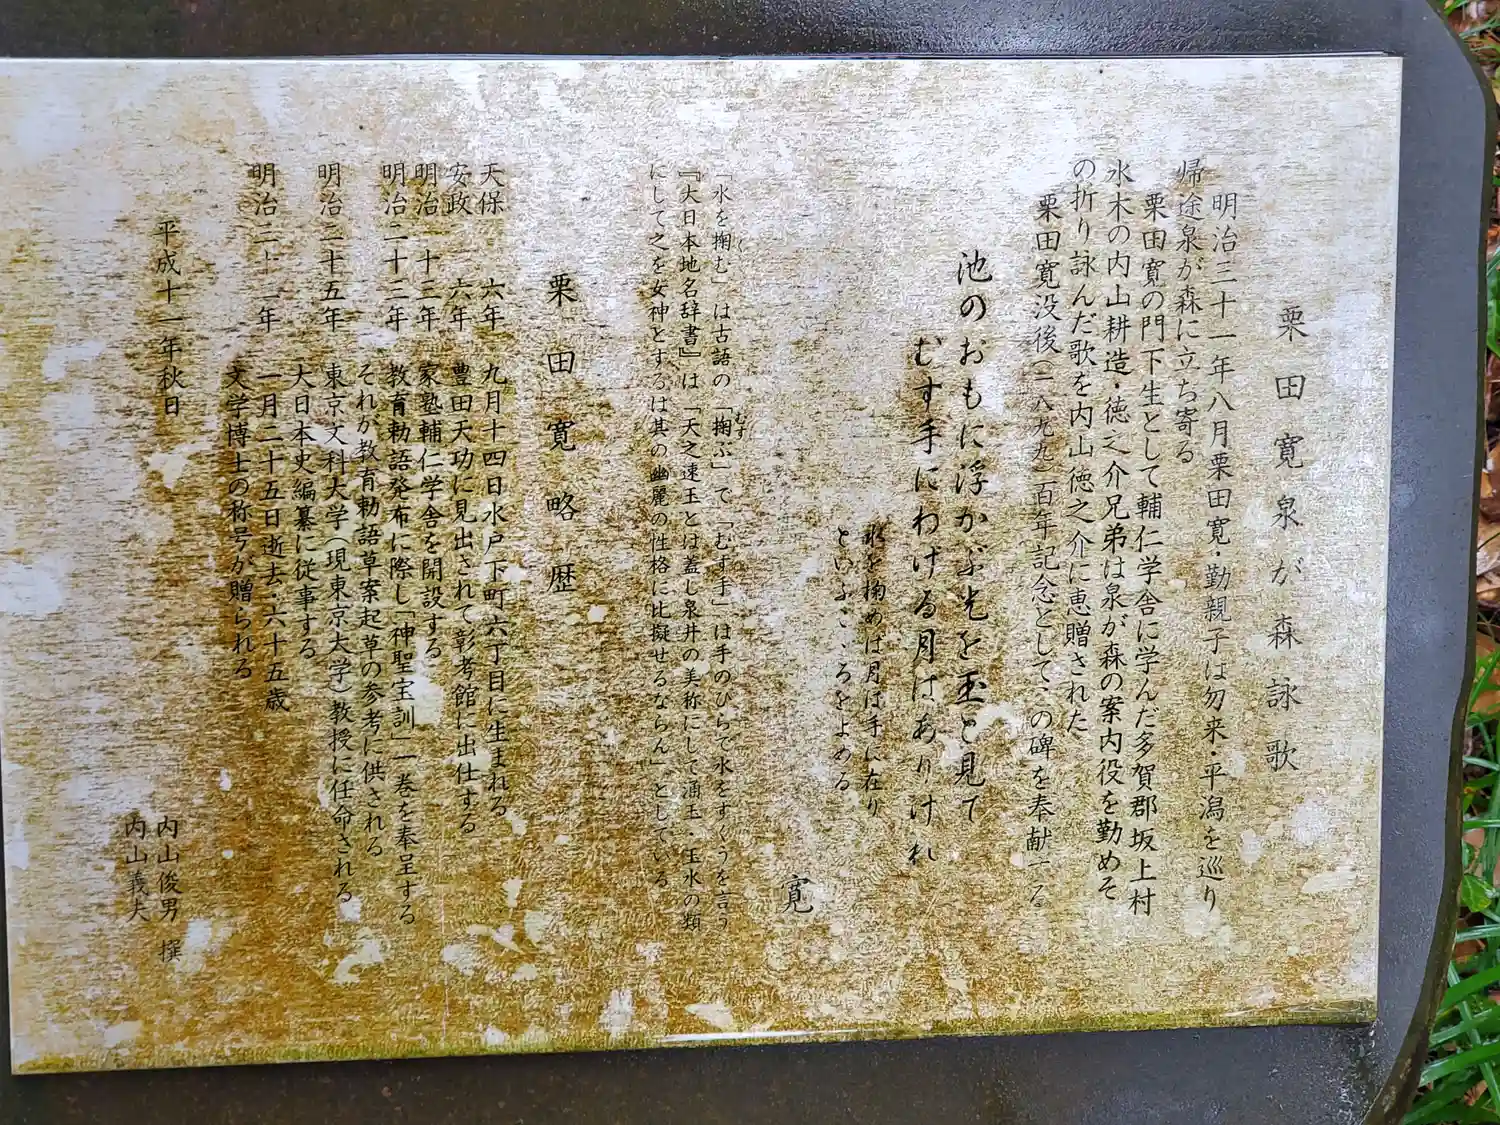 栗田寛泉が森詠歌
明治三十一年八月栗田寛・勤親子は勿来・平潟を巡り
帰途泉が森に立ち寄る
栗田寛の門下生として輔仁学舎に学んだ多賀郡坂上村
水木の内山耕造・徳之介兄弟は泉が森の案内役を勤めそ
の折り詠んだ歌を内山徳之介に恵贈された
栗田寛没後(一八九九)百年記念として、の碑を奉献する
池のおもに浮かぶ光を玉と見て
むす手にわける月はありけれ
水を掬めば月は手に在り
といふこゝろをよめる
寛
「水を掬む」は古語の「掬ぶ」で「むす手」は手のひらで水をすくうを言う
くむ
むす
『大日本地名辞書』は「天之速玉とは蓋し泉井の美称にして涌玉・玉水の類
にして之を女神とするは其の幽麗の性格に比擬せるならん」としている
栗田寛略歴
天保 六年 九月十四日水戸下町六丁目に生まれる
安政 六年 豊田天功に見出されて彰考館に出仕する
明治 十二年 家塾輔仁学舎を開設する
明治二十二年 教育勅語発布に際し「神聖宝訓」一巻を奉呈する
それが教育勅語草案起草の参考に供される
明治二十五年 東京文科大学(現東京大学)教授に任命される
大日本史編纂に従事する
明治三十二年 一月二十五日逝去・六十五歳
文学博士の称号が贈られる
平成十一年秋日
内山俊男 撰
内山義夫